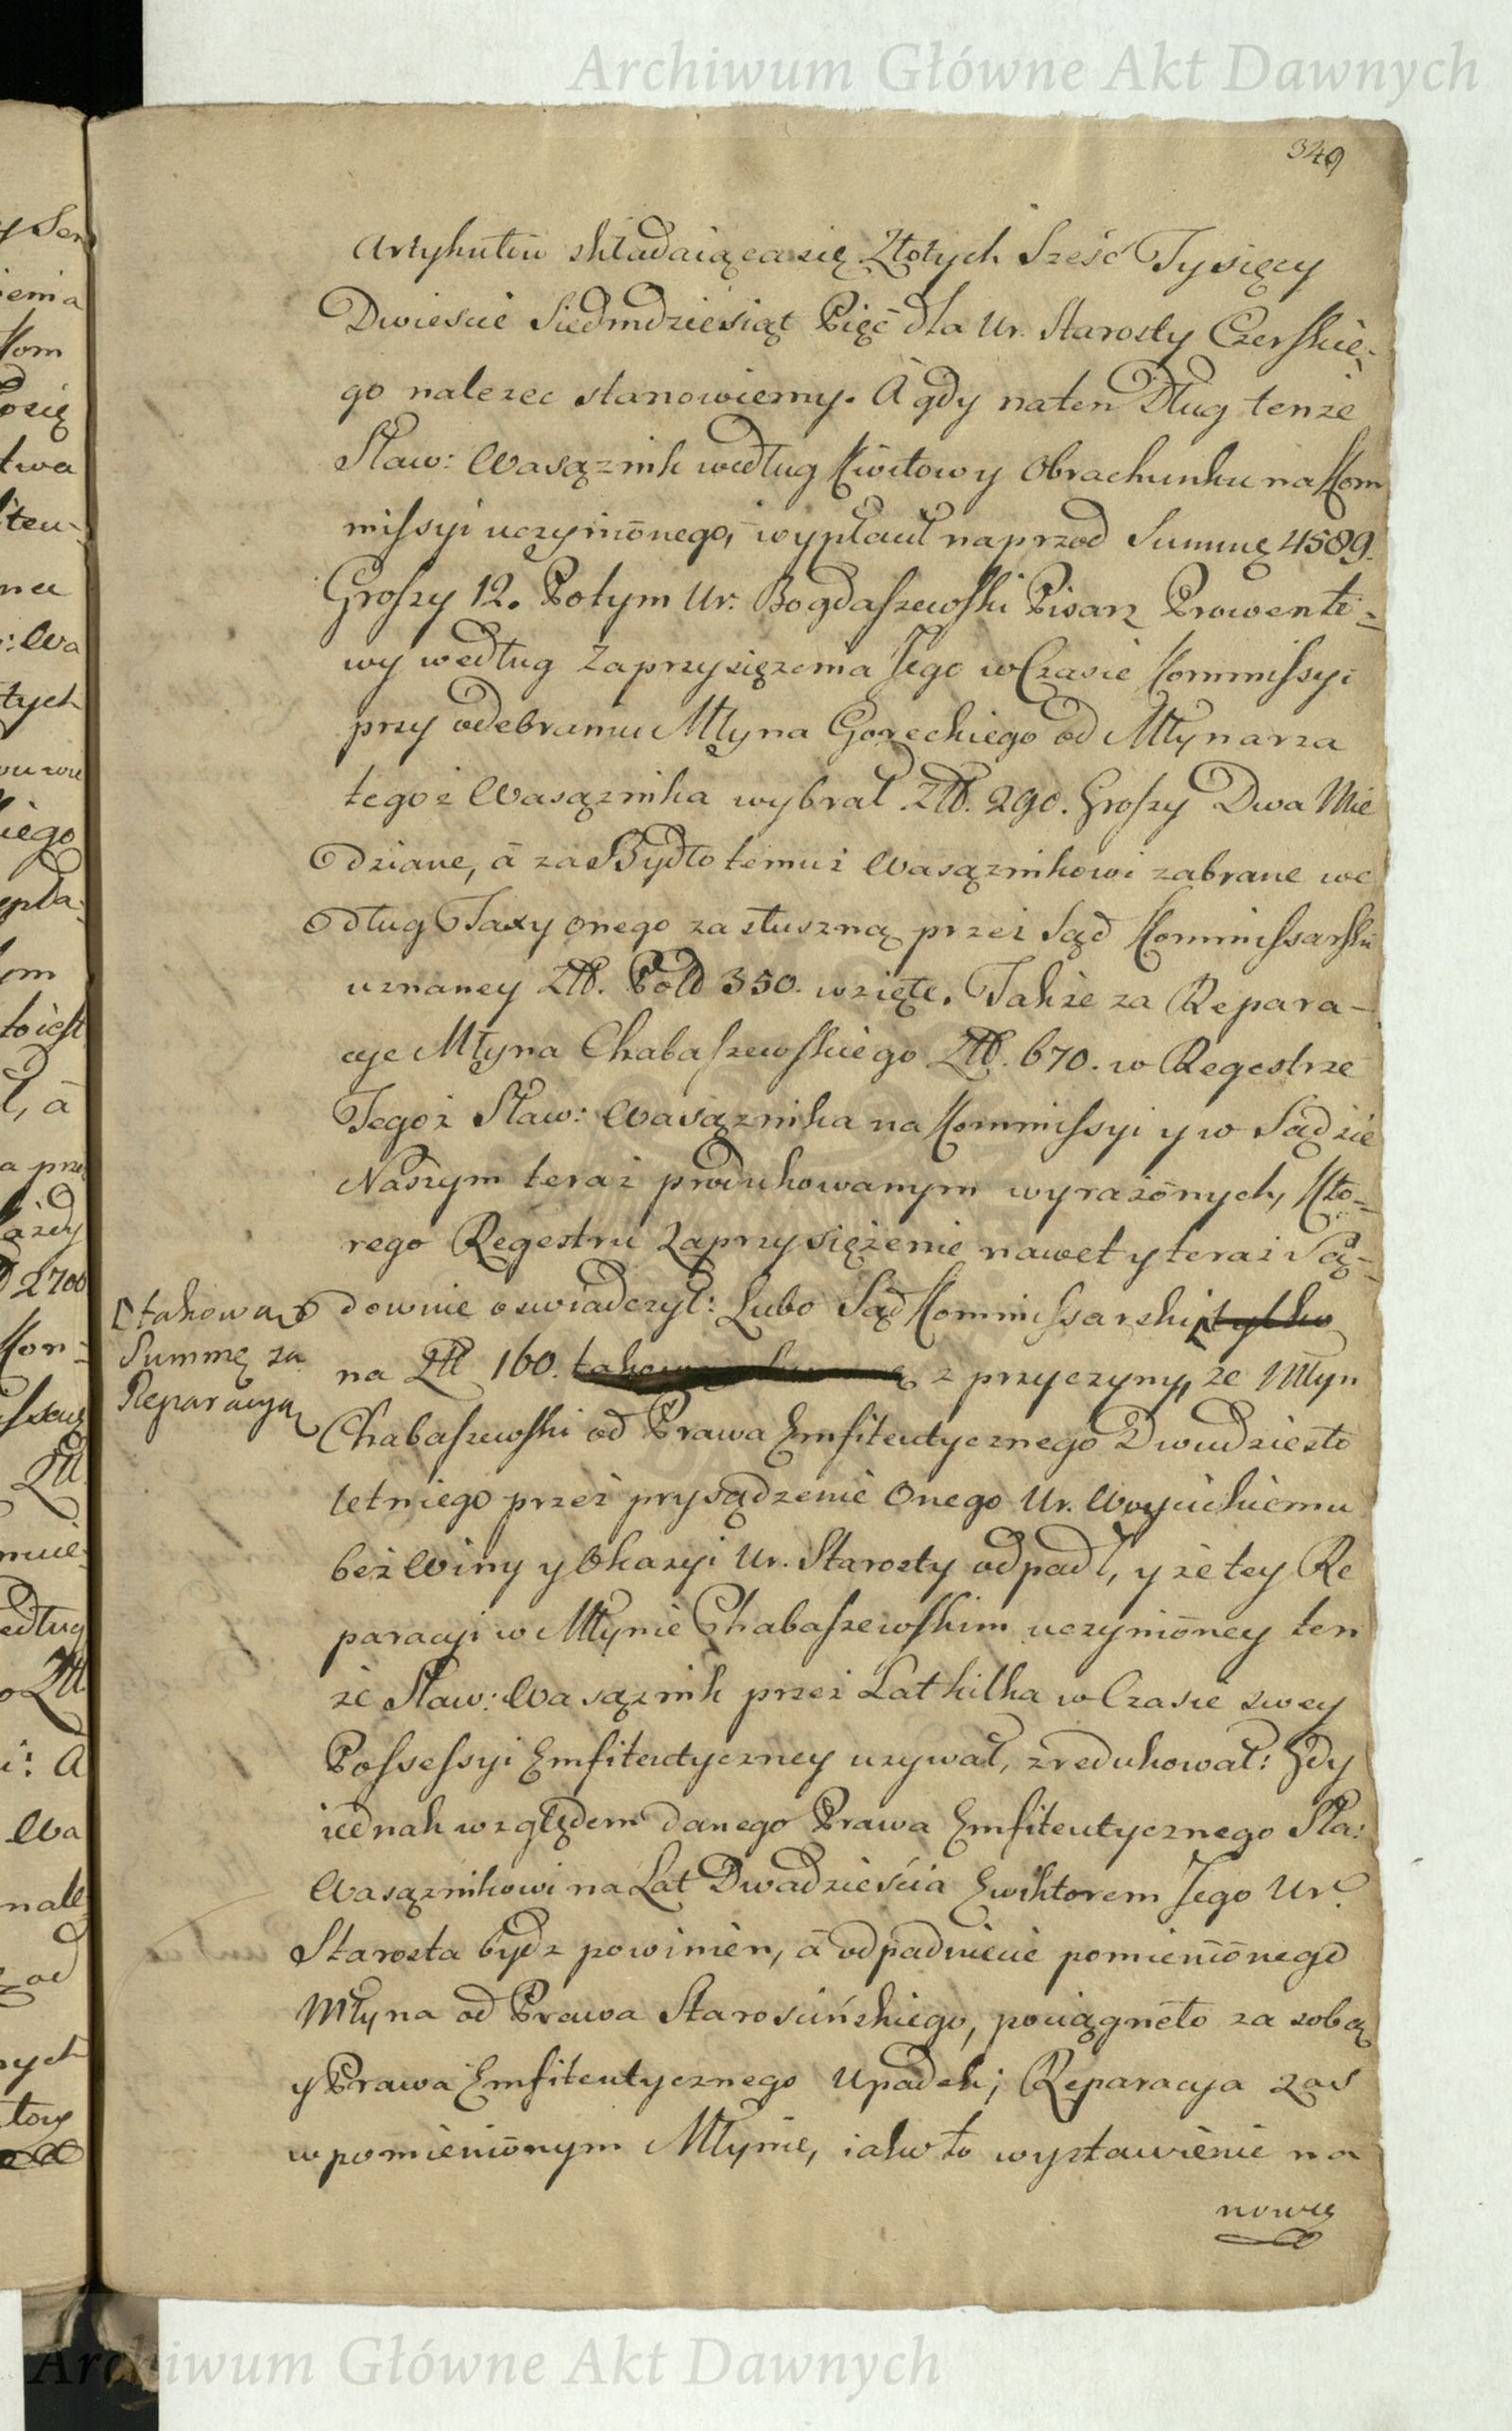 Archiwum Główne Akt Dawnych
349
Artykułow składaiąca się Złotych Sześć Tysięcy
Dwiescie Siedmdziesiąt Pięć dla Ur. Starosty Czerskie-
go nalezec stanowiemy. A gdy na ten Dług tenże
Sław: Wasąznik według Kwitow y Obrachunku na Kom
missyi uczynionego, wypłacił naprzod Summę 4589.
Groszy 12. Potym Ur. Bogdaszewski Pisarz Prowento-
wy według Zaprzysięzenia Jego w Czasie Kommissyi
przy odebraniu Młyna Goreckiego od Młynarza
tegoż Wasąznika wybrał Złł. 290. Groszy Dwa Mie
dziane, a za Bydło temuż Wasąznikowi zabrane we
dług Taxy onego za słuszną przez Sąd Kommissarski
uznaney Złł. Pold 350. wzięte. Takze za Repara-
cye Młyna Chabaszewskiego Złł. 670. w Regestrze
Tegoż Sław: Wasąznika na Kommissyi y w Sądzie
Naszym teraz produkowanym wyrażonych, Kto-
rego Regestru Zaprzysiężenie nawet y teraz Są-
downie oswiadczył: Lubo Sąd Kommissarski tylko
takową
Summę za
Reparacyą
na Złł 160. takową Summę z przyczyny, że Młyn
Chabaszewski od Prawa Emfiteutycznego Dwudziesto
letniego przez prysądzenie Onego Ur. Woycickiemu
bez Winy y Okazyi Ur. Starosty odpadł, y że tey Re
paracyi w Młynie Chabaszewskim uczynioney ten
że Sław: Wasąznik przez Lat kilka w Czasie swey
Possessyi Emfiteutyczney uzywał, zredukował: Gdy
iednak względem danego Prawa Emfiteutycznego Sła:
Wasąznikowi na Lat Dwadzieścia Ewiktorem Jego Ur.
Starosta bydz powinien, a odpadnienie pomienionego
Młyna od Prawa Starościńskiego, pociągneło za sobą
y Prawa Emfiteutycznego Upadek; Reparacya zas
w pomienionym Młynie, iako to wystawienie na
nowe
Archiwum Główne Akt Dawnych